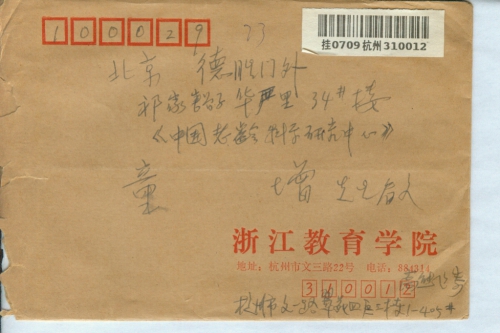 100029
挂0709杭州310012
北京 德胜门外
祁家豁子华严里34#楼
《中国老龄科学研究中心》
童 增 先生 启
浙江教育学院
地址：杭州市文三路22号 电话：884311
310012
杭州市文一路